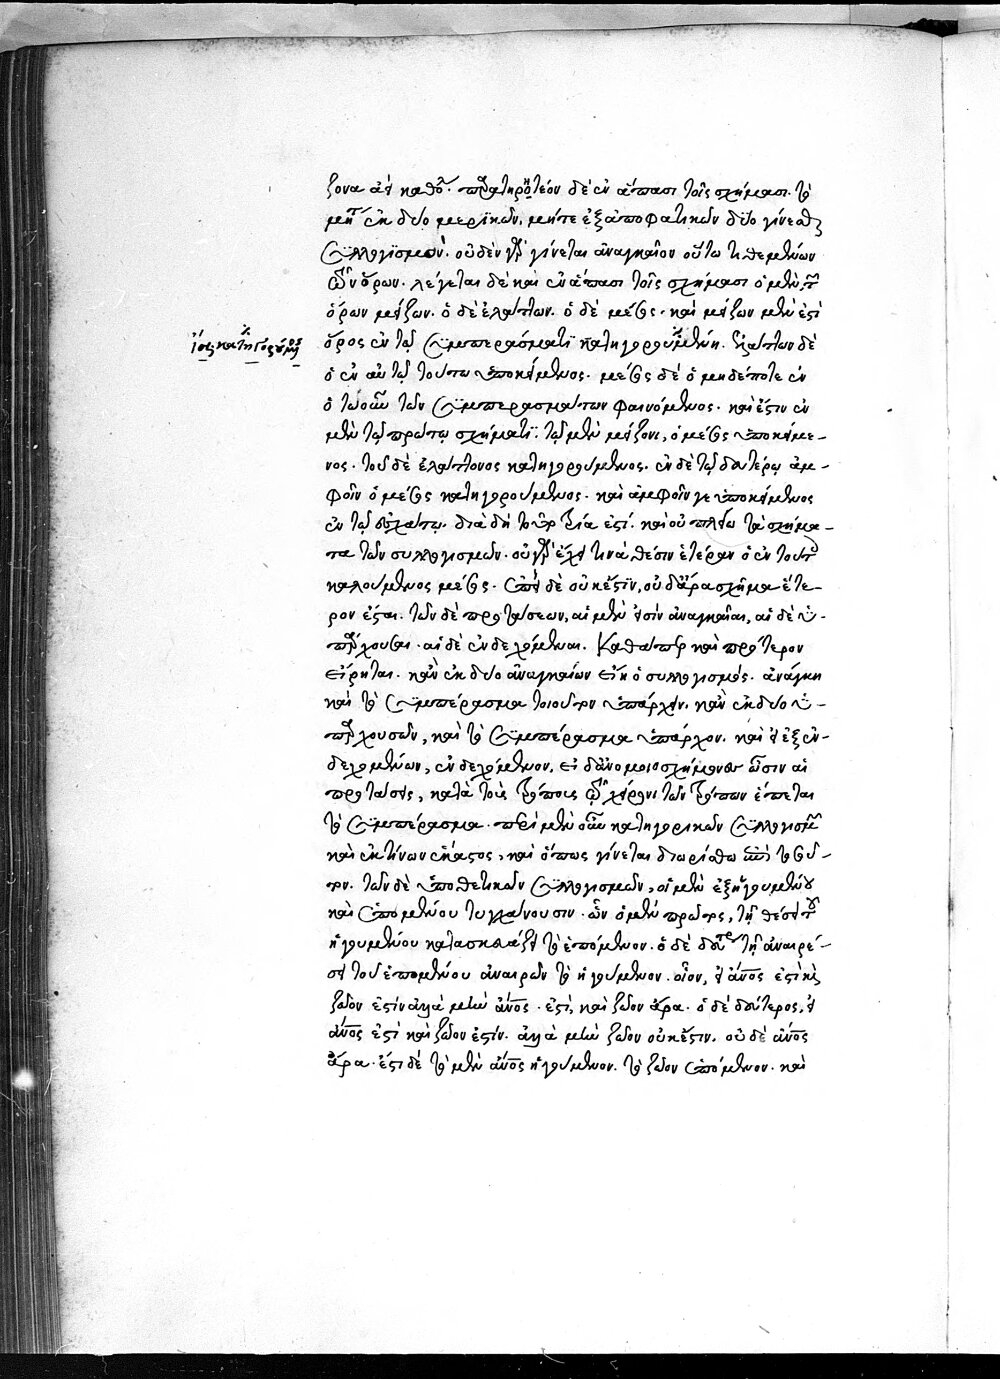 ζονα ἀεὶ καθόλου. παρατηρητέον δὲ ἐν ἅπασι τοῖς σχήμασι τὸ
μήτε ἐκ δύο μερικῶν, μήτε ἐξ ἀποφατικῶν δύο γίνεσθαι
συλλογισμόν. οὐδὲν γὰρ γίνεται ἀναγκαῖον οὕτω τιθεμένων
τῶν ὅρων. λέγεται δὲ καὶ ἐν ἅπασι τοῖς σχήμασι ὁ μὲν τῶν
ὅρων μείζων. ὁ δὲ ἐλάττων. ὁ δὲ μέσος. καὶ μείζων μὲν ἐστὶ
ὅρος ἐν τῷ συμπεράσματι κατηγορούμενος. ἐλάττων δὲ
ὁ ἐν αὐτῷ τούτω ὑποκείμενος. μέσος δὲ ὁ μηδέποτε ἐν
τῶν συμπερασμάτων φαινόμενος. καὶ ἔστιν ἐν
μὲν τῷ πρώτω σχήματι. τῷ μὲν μείζονι, ὁ μέσος ὑποκείμε-
νος. τοῦ δὲ ἐλάττονος κατηγορούμενος. ἐν δὲ τῷ δευτέρῳ ἀμ-
φοῖν ὁ μέσος κατηγορούμενος. καὶ ἀμφοῖν γε ὑποκείμενος
ἐν τῷ ἐσχάτω. διὰ δὴ τοῦτο τρία ἐστί. καὶ οὐ πλείω τὰ σχήμα-
τα τῶν συλλογισμῶν. οὐ γὰρ ἔχει τινὰ θέσιν ἑτέραν ὁ ἐν τούτοις
καλούμενος μέσος. ἐπεὶ δὲ οὐκ ἔστιν, οὐδ' ἄρα σχῆμα ἕτε-
ρον ἔσται. τῶν δὲ προτάσεων, αἱ μὲν εἰσὶν ἀναγκαῖαι, αἱ δὲ ὑ-
πάρχουσαι. αἱ δὲ ἐνδεχόμεναι. καθάπερ καὶ πρότερον
εἴρηται. κἂν ἐκ δύο ἀναγκαίων εἴη ὁ συλλογισμός. ἀνάγκη
καὶ τὸ συμπέρασμα τοιοῦτον ὑπάρχειν. κἂν ἐκ δύο ὑ-
παρχουσῶν, καὶ τὸ συμπέρασμα ὑπάρχον. καὶ εἰ ἐξ ἐν-
δεχομένων, ἐνδεχόμενον. εἰ δ' ἀνομοιοσχήμονες ὦσιν αἱ
προτάσεις, κατὰ τοὺς τρόπους τῷ χείρονι τῶν τρόπων ἕπεται
τὸ συμπέρασμα. περὶ μὲν οὖν κατηγορικῶν συλλογισμῶν
καὶ ἐκ τίνων ἕκαστος, καὶ ὅπως γίνεται διωρίσθω ἐπὶ τοσοῦ-
τον. τῶν δὲ ὑποθετικῶν συλλογισμῶν, οἱ μὲν ἐξ ἡγουμένου
καὶ ἑπομένου τυγχάνουσιν. ὧν ὁ μὲν πρῶτος, τῇ θέσει τοῦ
ἡγουμένου κατασκευάζει τὸ ἑπόμενον. ὁ δὲ δεύτερος τῇ ἀναιρέ-
σει τοῦ ἑπομένου ἀναιρῶν τὸ ἡγούμενον. οἷον, εἰ ἄνθρωπος ἐστὶ καὶ
ζῶον ἐστὶν ἀλλὰ μὴν ἄνθρωπος ἐστί, καὶ ζῶον ἄρα. ὁ δὲ δεύτερος, εἰ
ἄνθρωπος ἐστὶ καὶ ζῶον ἐστίν. ἀλλὰ μὴν ζῶον οὐκ ἔστιν. οὐδὲ ἄνθρωπος
ἄρα. ἔστι δὲ τὸ μὲν ἄνθρωπος ἡγούμενον. τὸ ζῶον ἑπόμενον. καὶ